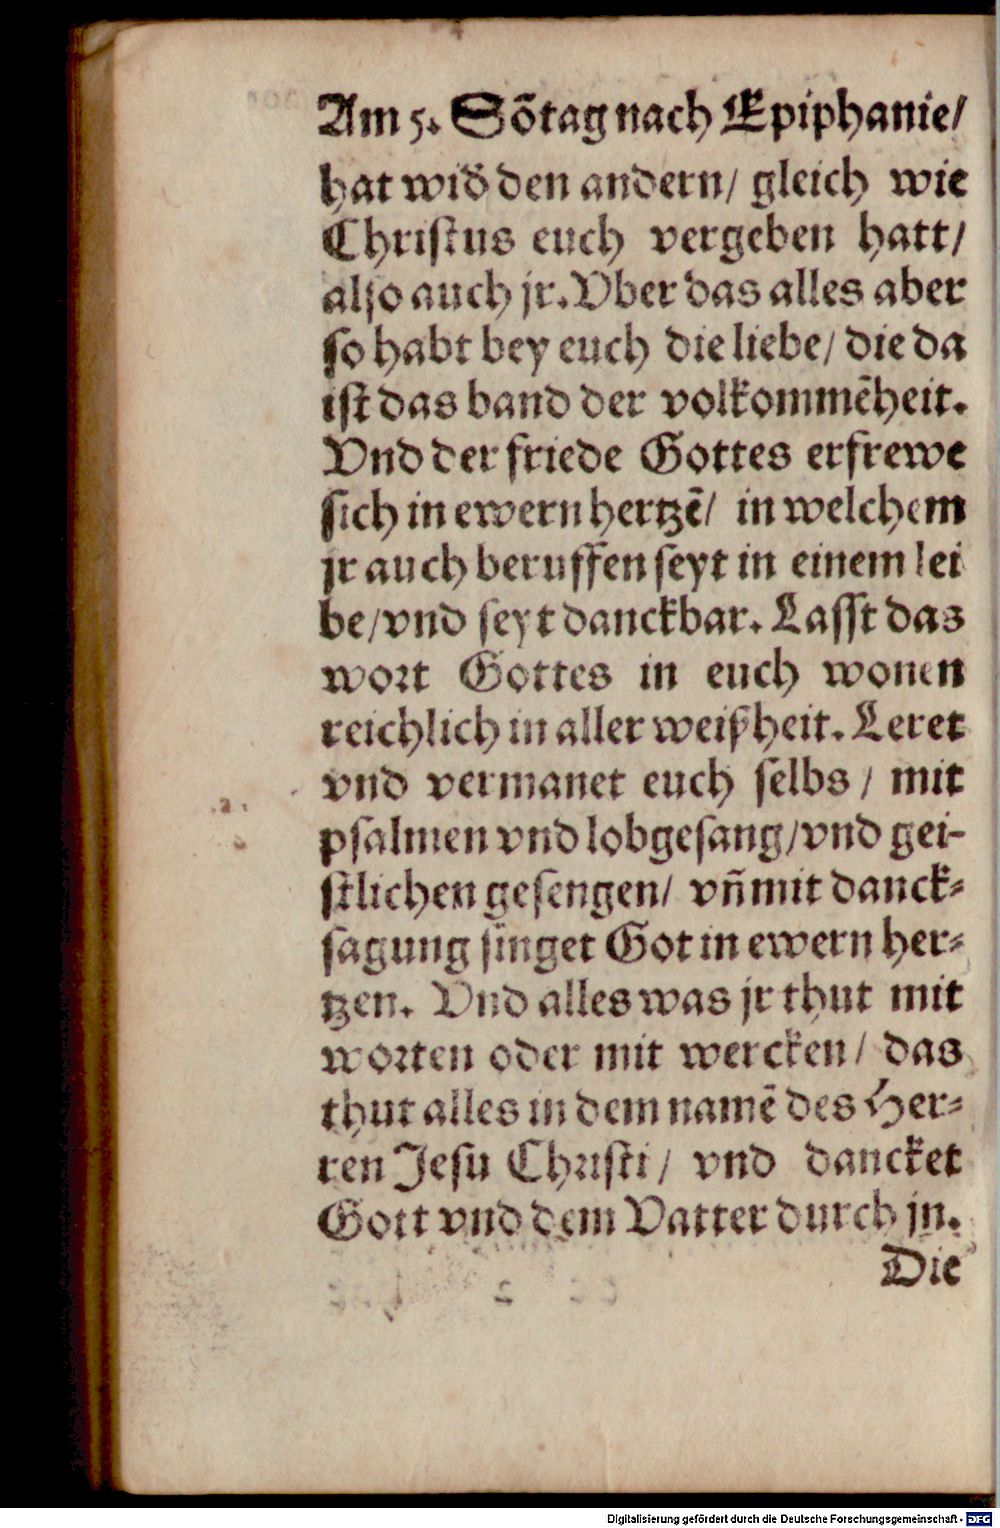 Am 5. Sõtag nach Epiphanie/
hat wid̃ den andern/ gleich wie
Christus euch vergeben hatt/
also auch jr. Vber das alles aber
so habt bey euch die liebe/ die da
ist das band der volkommẽheit.
Vnd der friede Gottes erfrewe
sich in ewern hertzẽ/ in welchem
jr auch beruffen seyt in einem lei
be/vnd seyt danckbar. Lasst das
wort Gottes in euch wonen
reichlich in aller weißheit. Leret
vnd vermanet euch selbs / mit
psalmen vnd lobgesang/vnd gei-
stlichen gesengen/ vñ mit danck-
sagung singet Got in ewern her-
tzen. Vnd alles was jr thut mit
worten oder mit wercken/ das
thut alles in dem namẽ des Her-
ren Jesu Christi/ vnd dancket
Gott vnd dem Vatter durch jn.
Die
Digitalisierung gefördert durch die Deutsche Forschungsgemeinschaft - DFG